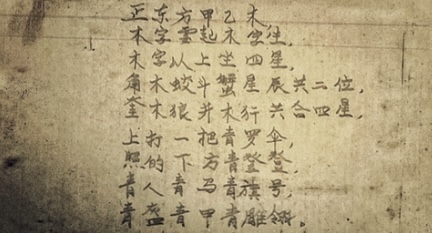 正东方甲乙木，
木字雲起木字生，
木字以上坐四星，
角木蛟斗蟹星辰共二位，
奎木狼井木行共合四星，
上打一把青罗伞，
照的下方青登登，
青人青马青旗号，
青盔青甲青雕翎。